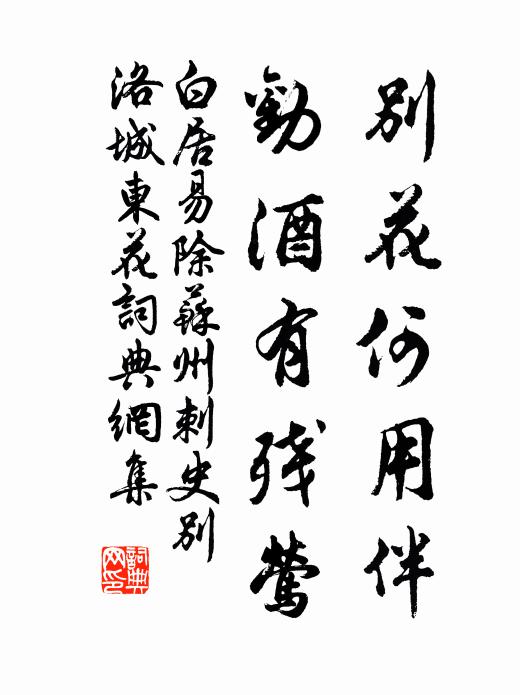 別花何用伴
勸酒有残鶯
白居易除蘇州刺史別
洛城東花詞典網集
詞典网印